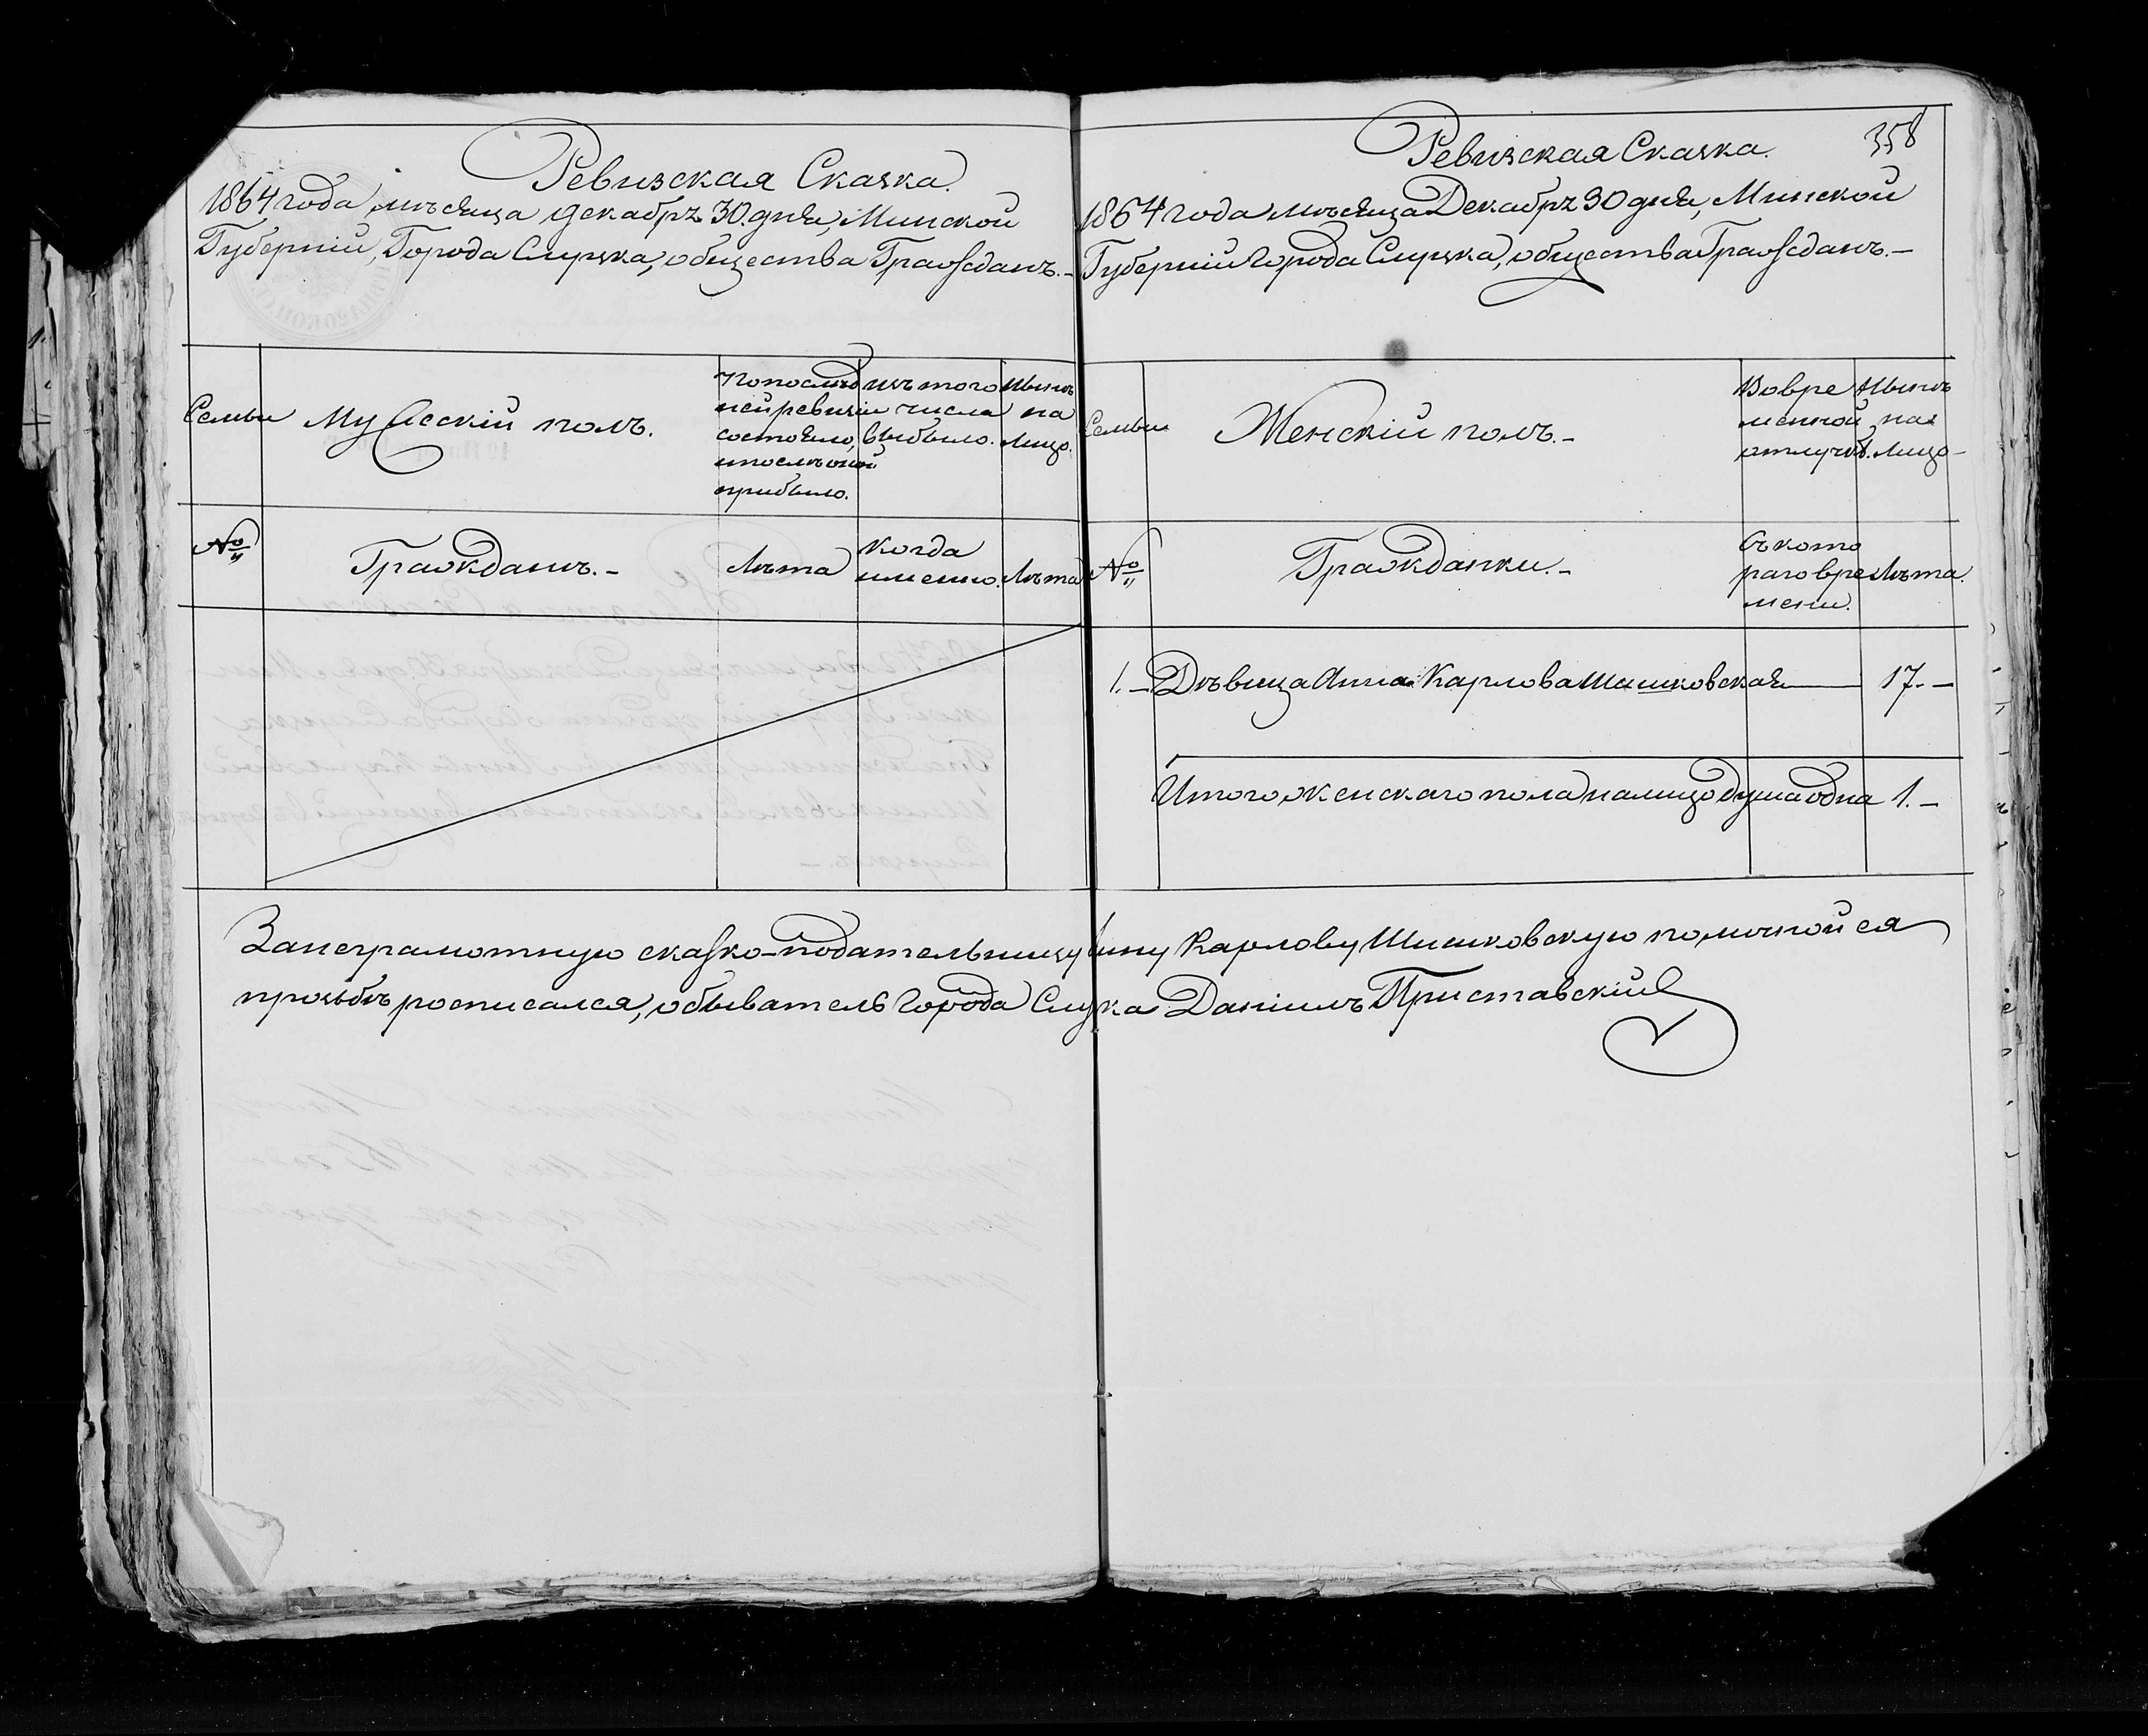 Ревизская Сказка.
1864 года мѣсяца декабря 30 дня, Минской
Губерніи, Города Слуцка, общества Гражданъ.-
Семьи
Мужескій полъ.
По послѣд
ней ревизіи
состояло,
и послѣ оной
прибыло.
изъ того
числа
выбыло.
Нынѣ
на
лицо.
№
Гражданъ.-
Лѣта
Когда
именно.
Лѣта
358
Ревизская Сказка.
1864 года мѣсяца Декабря 30 дня, Минской
Губерніи Города Слуцка, общества Гражданъ.-
Семьи
Женскій полъ.-
Во вре
менной
отлучкѣ.
Нынѣ
на
лицо-
№
Гражданки.-
Съ кото
раго вре
мени.
Лѣта.
1.- Дѣвица Анна Карлова Шишковская 17.-
Итого женскаго пола на лицо душа одна 1.-
За неграмотную сказко-подательницу Анну Карлову Шишковскую по личной ея
прозьбѣ росписался, обыватель Города Слуцка Даніилъ Приставскій